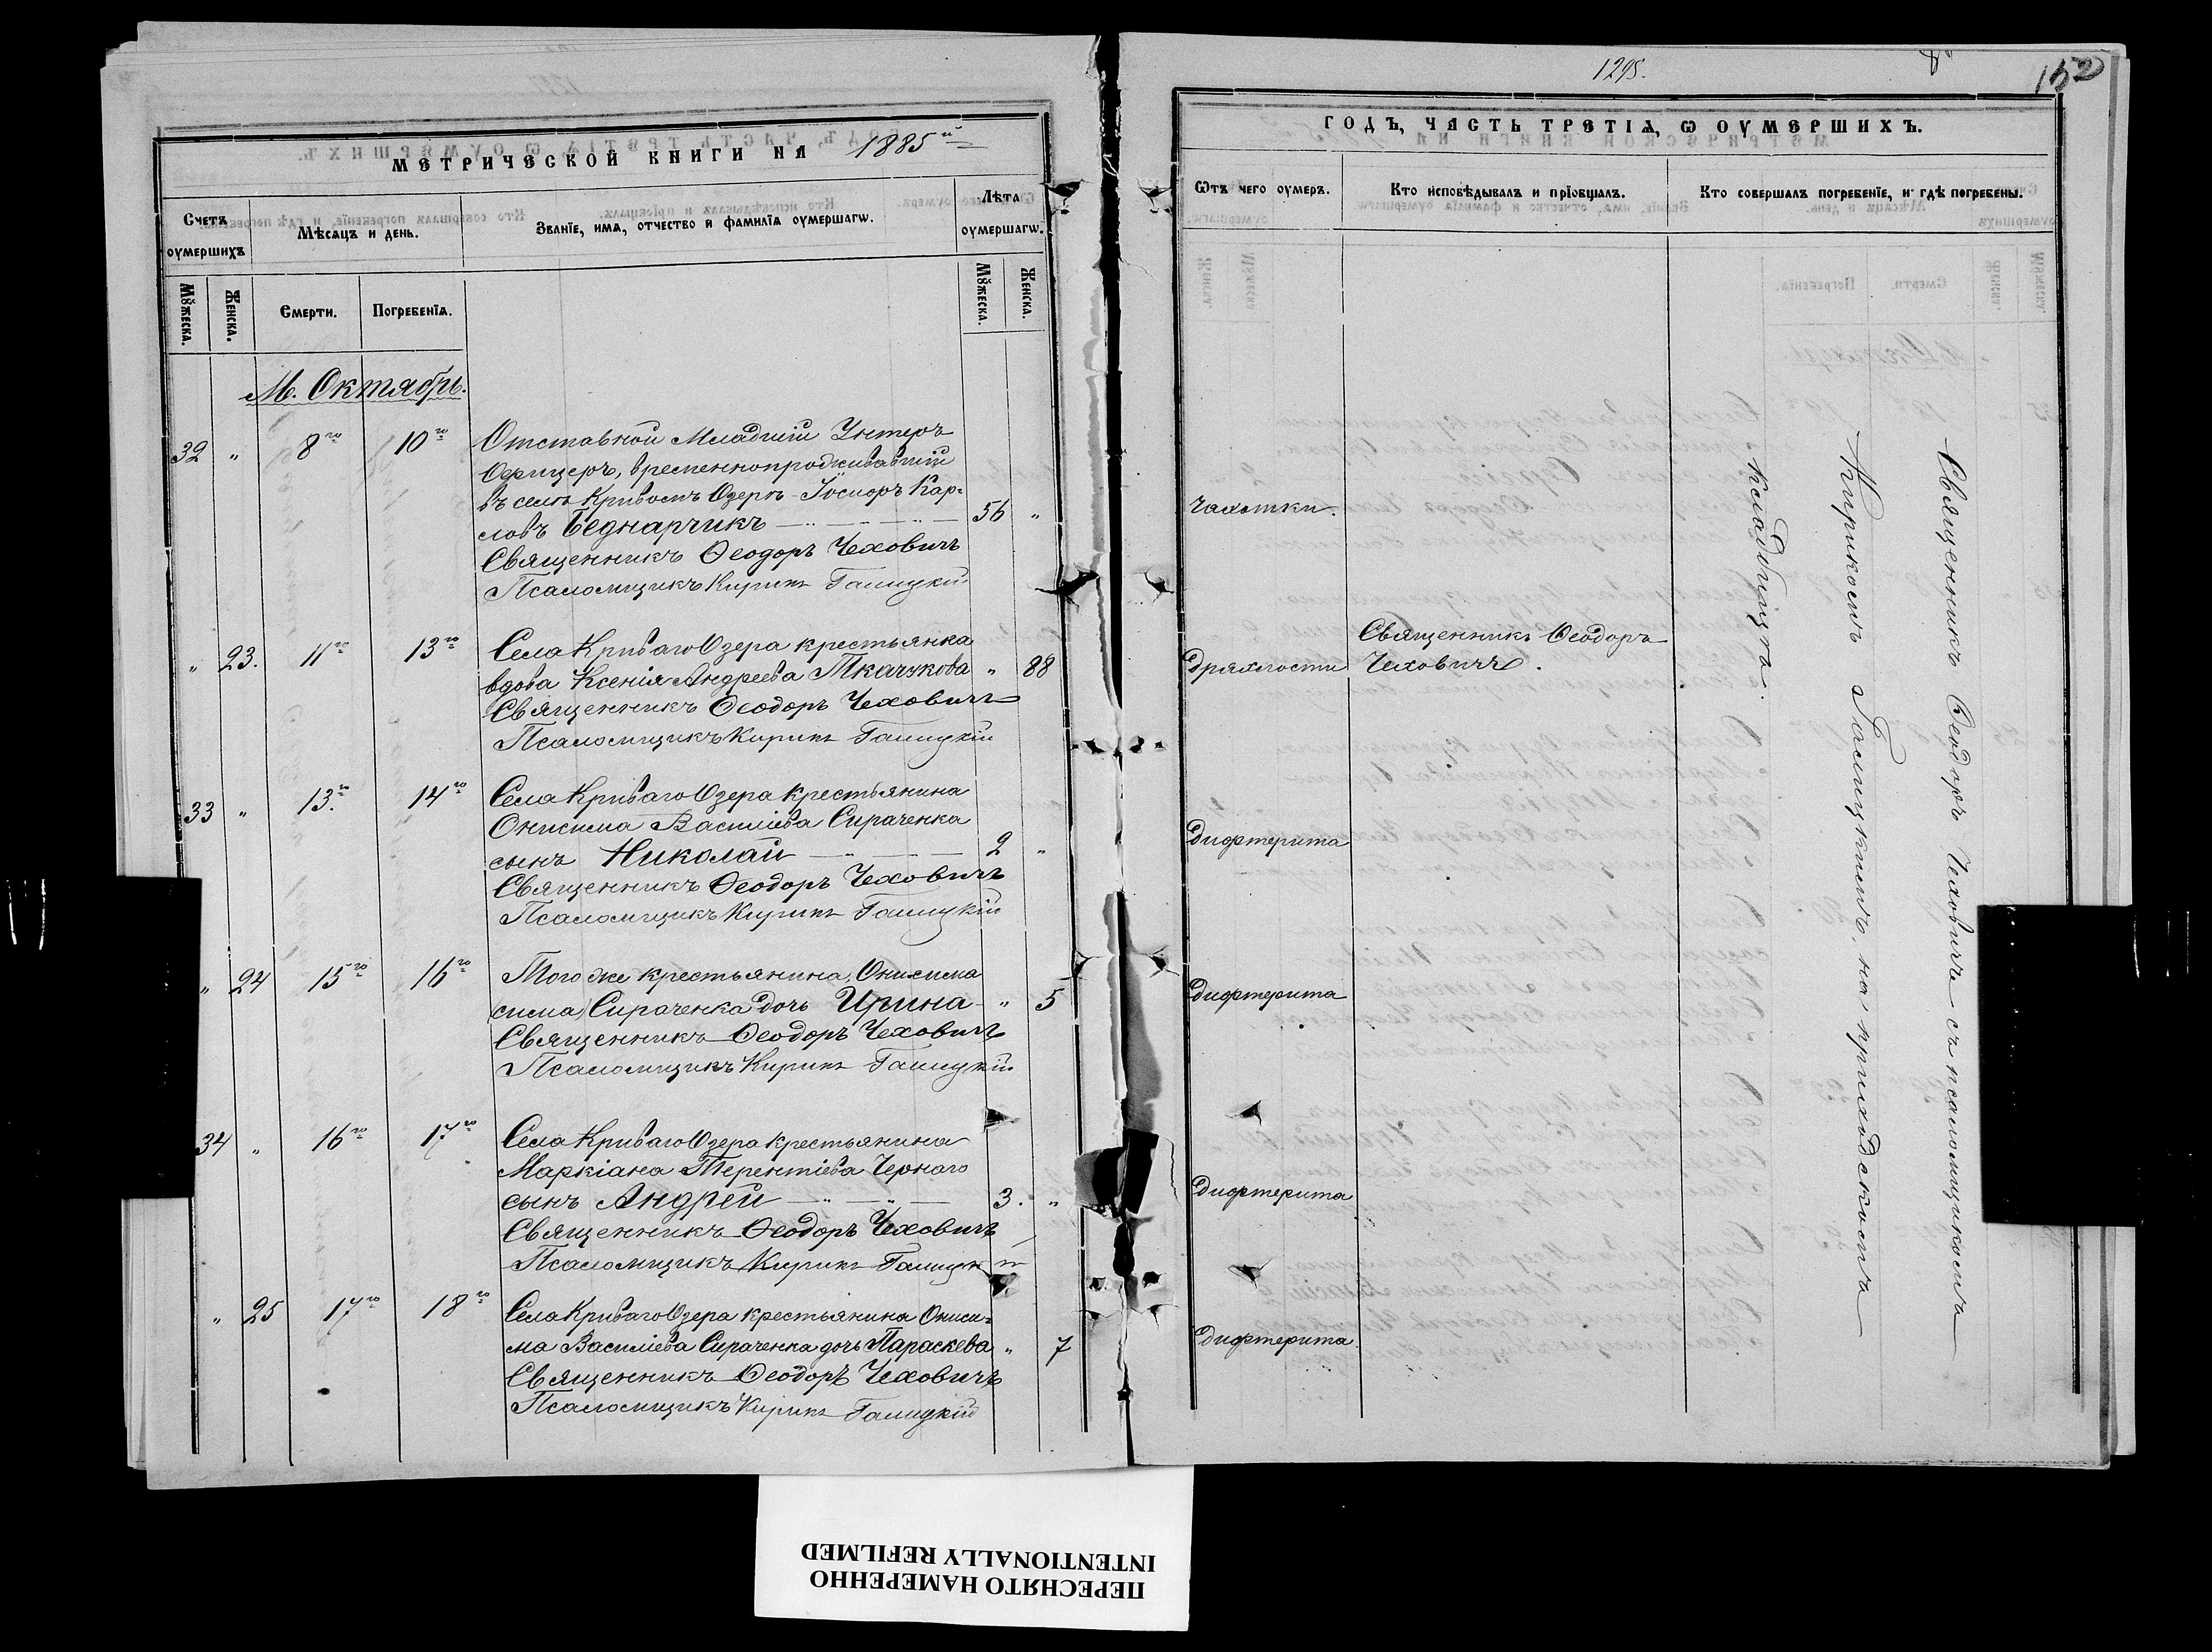 МЕТРИЧЕСКОЙ КНИГИ НА 1885й
Счетъ оумершихъ
Мѣсяцъ и день.
Званіе, имя, отчество и фамилія оумершагѡ.
Лѣта оумершагѡ.
Мꙋжеска.
Женска.
Смерти.
Погребенія.
Мꙋжеска.
Женска.
М. Октябрь.
32 " 8го 10го Отставной Младшій Унтеръ
Офицеръ, временнопроживавшій
въ селѣ Кривомъ Озерѣ Іосифъ Кар=
ловъ Беднарчикъ — " — " — 56 "
Священникъ Ѳеодоръ Чеховичъ
Псаломщикъ Кирикъ Галицкій
" 23. 11го 13го Села Криваго Озера крестьянка
вдова Ксенія Андреева Ткачукова " 88
Священникъ Ѳеодоръ Чеховичъ
Псаломщикъ Кирикъ Галицкій
33 " 13.го 14го Села Криваго Озера крестьянина
Онисима Василіева Сираченка
сынъ Николай — " — 2 "
Священникъ Ѳеодоръ Чеховичъ
Псаломщикъ Кирикъ Галицкій
" 24 15го 16го Того же крестьянина Онисима
сима Сираченка дочь Ирина - " 5
Священникъ Ѳеодоръ Чеховичъ
Псаломщикъ Кирикъ Галицкій
34 " 16го 17го Села Криваго Озера крестьянина
Маркіана Терентіева Чернаго
сынъ Андрей — " — " — 3. "
Священникъ Ѳеодоръ Чеховичъ
Псаломщикъ Кирикъ Галицкій
" 25 17го 18го Села Криваго Озера крестьянина Ониси=
ма Василіева Сираченка дочь Параскева " 7
Священникъ Ѳеодоръ Чеховичъ
Псаломщикъ Кирикъ Галицкій
1295.
152
ГОДЪ, ЧАСТЬ ТРЕТІЯ, Ѡ ОУМЕРШИХЪ.
Ѿтъ чего оумеръ.
Кто исповѣдывалъ и пріобщалъ.
Кто совершалъ погребеніе, и гдѣ погребены.
чахотки.
Священникъ Ѳеодоръ
дряхлости Чеховичъ.
дифтерита
дифтерита
дифтерита
дифтерита
Священникъ Ѳеодоръ Чеховичъ съ псаломщикомъ
Кирикомъ Галицкимъ, на приходскомъ
кладбищѣ.
ПЕРЕСНЯТО НАМЕРЕННО
INTENTIONALLY REFILMED